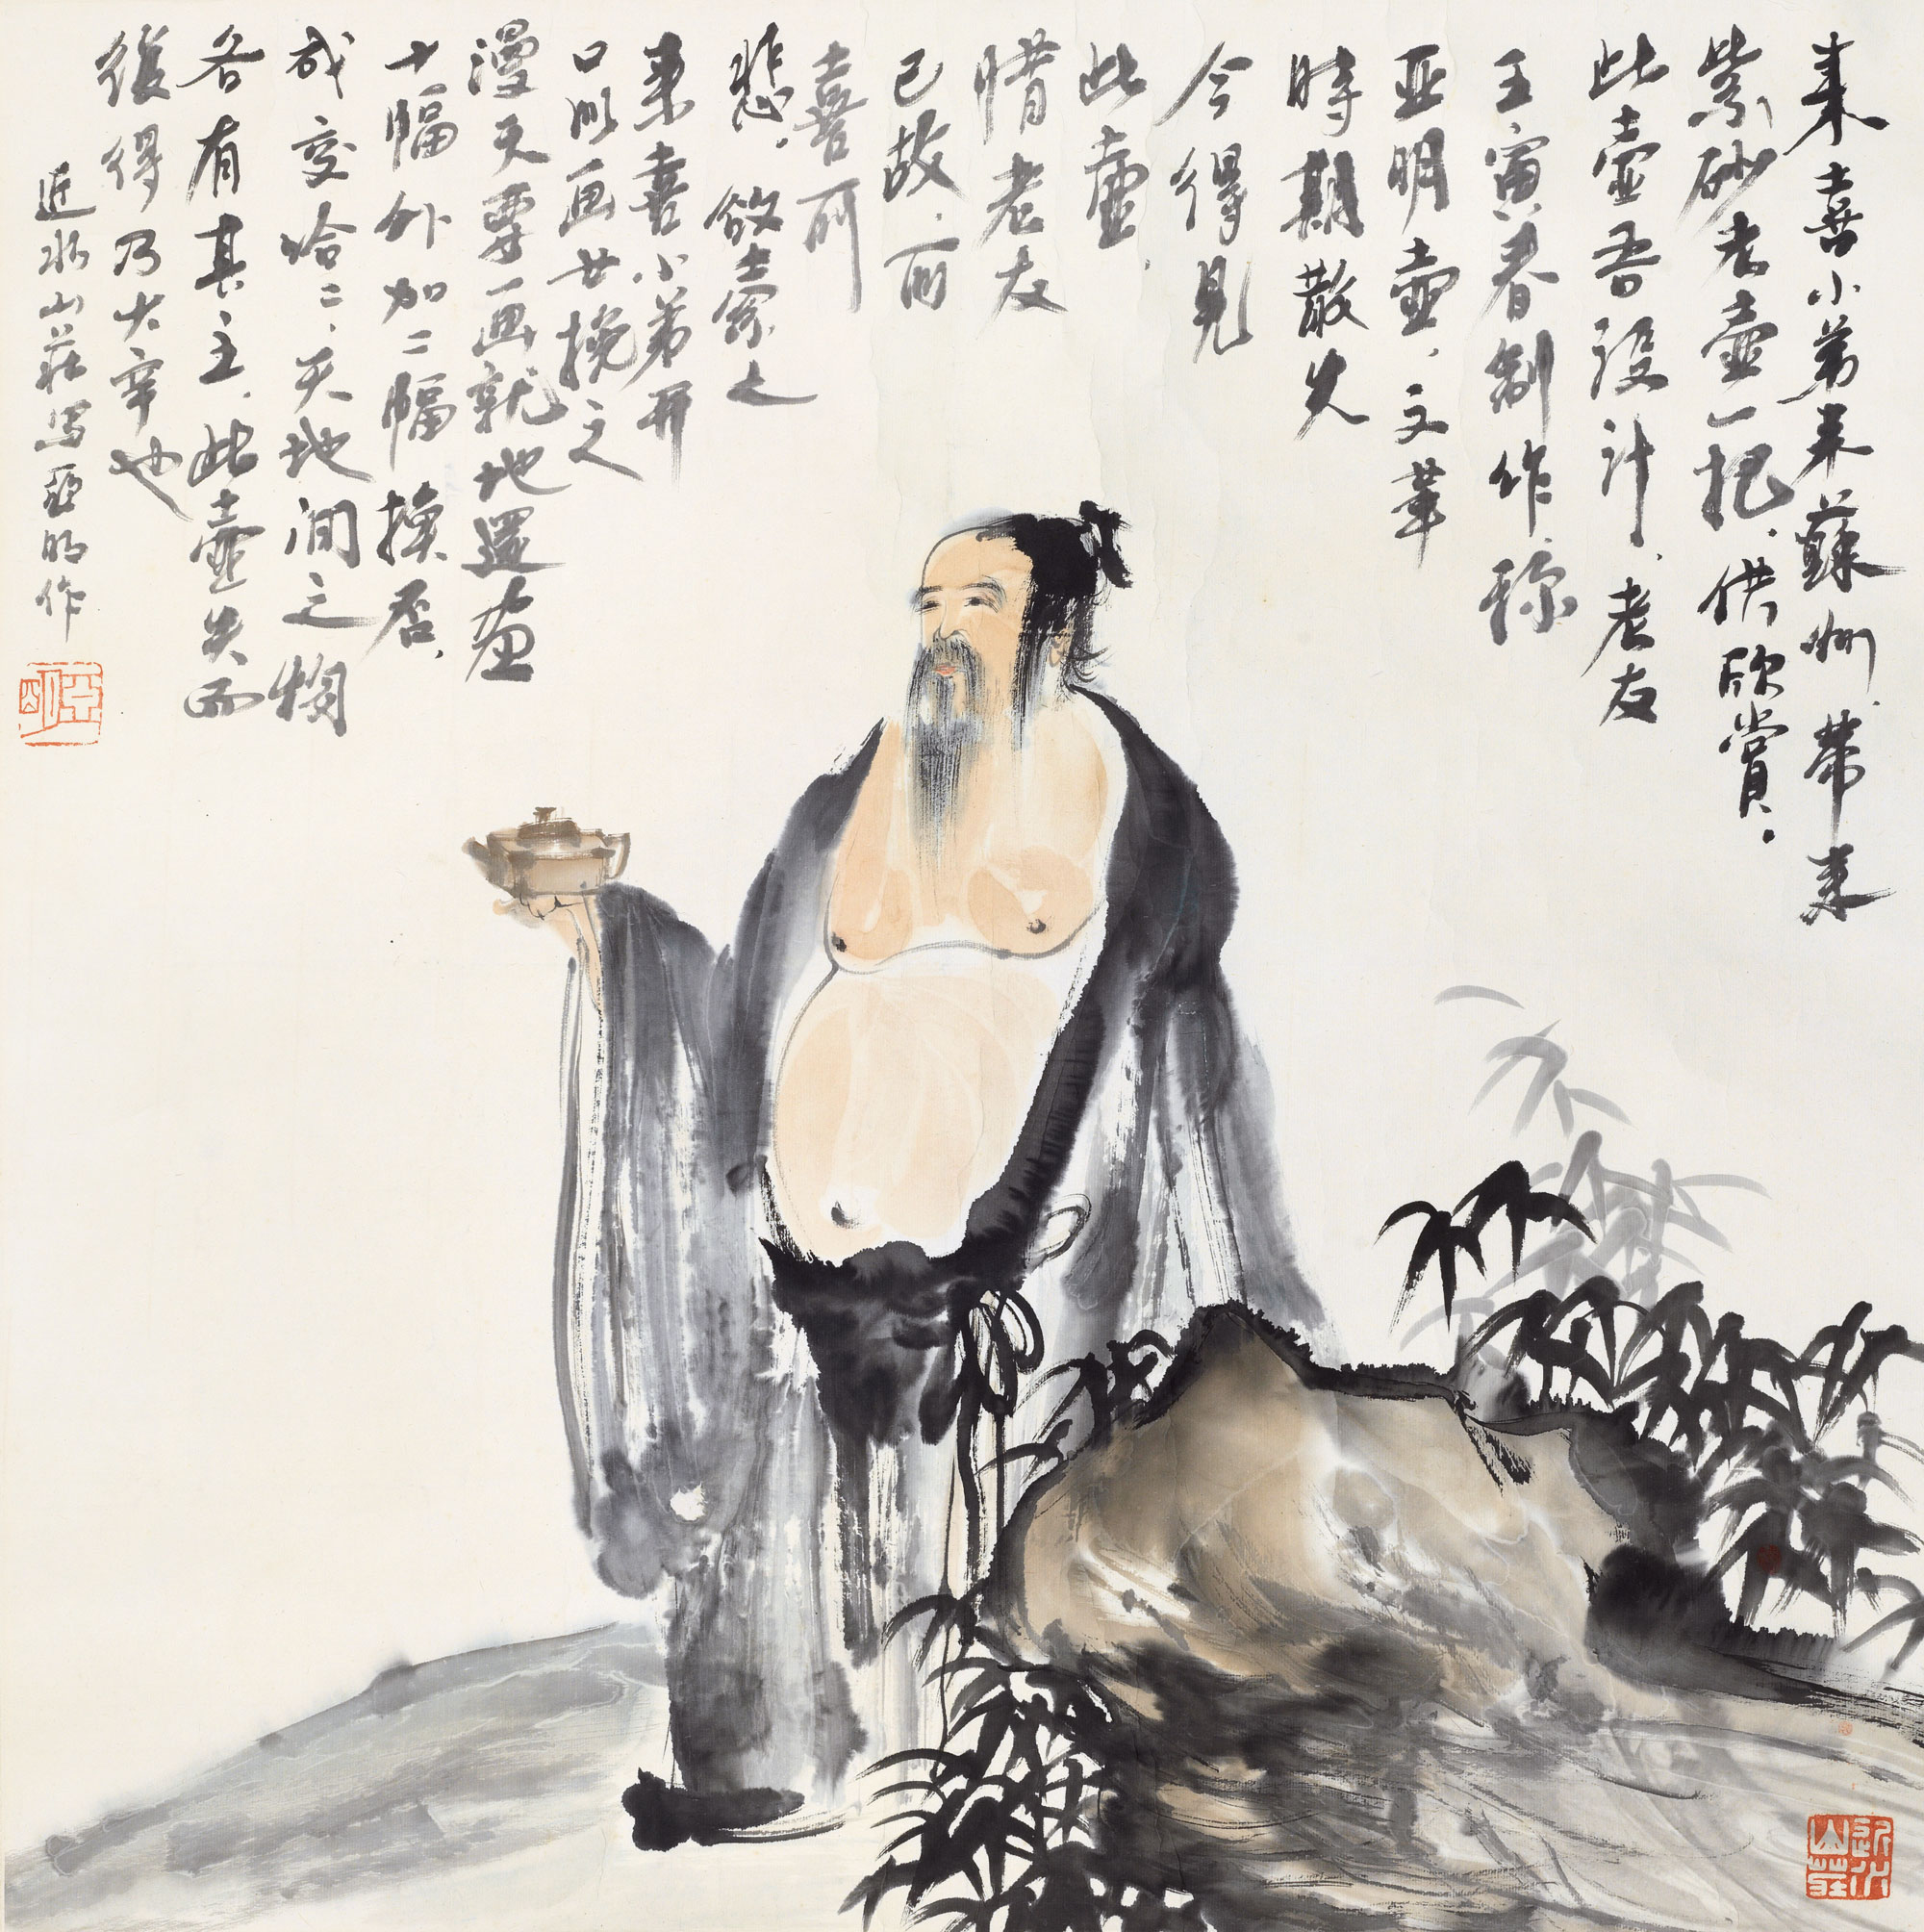 来喜小弟来蘇州.带来
紫砂老壶一把.供欣賞.
此壶吾设计.老友
王寅春制作.称
亚明壶.文革
時期散失
今得見
此壶.
惜老友
已故.可
喜可
悲.敘寄之
来喜小弟开
口以画廿換之
漫天要画就地還画
十幅外加二幅換否.
成交哈哈.天地间之物
各有其主.此壶失而
復得乃大幸也
近水山莊写亚明作
亞明
近水山莊